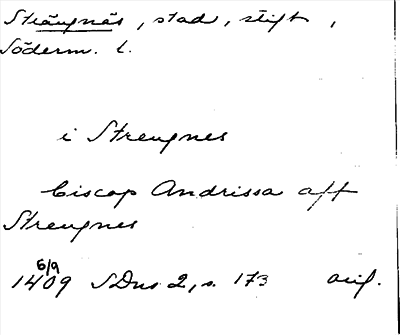 Strängnäs, stad, stift,
Söderm. l.
i Strengnes
biscop Andrissa aff
Strengnes
5/9
1409 SDns 2, s. 173 orig.